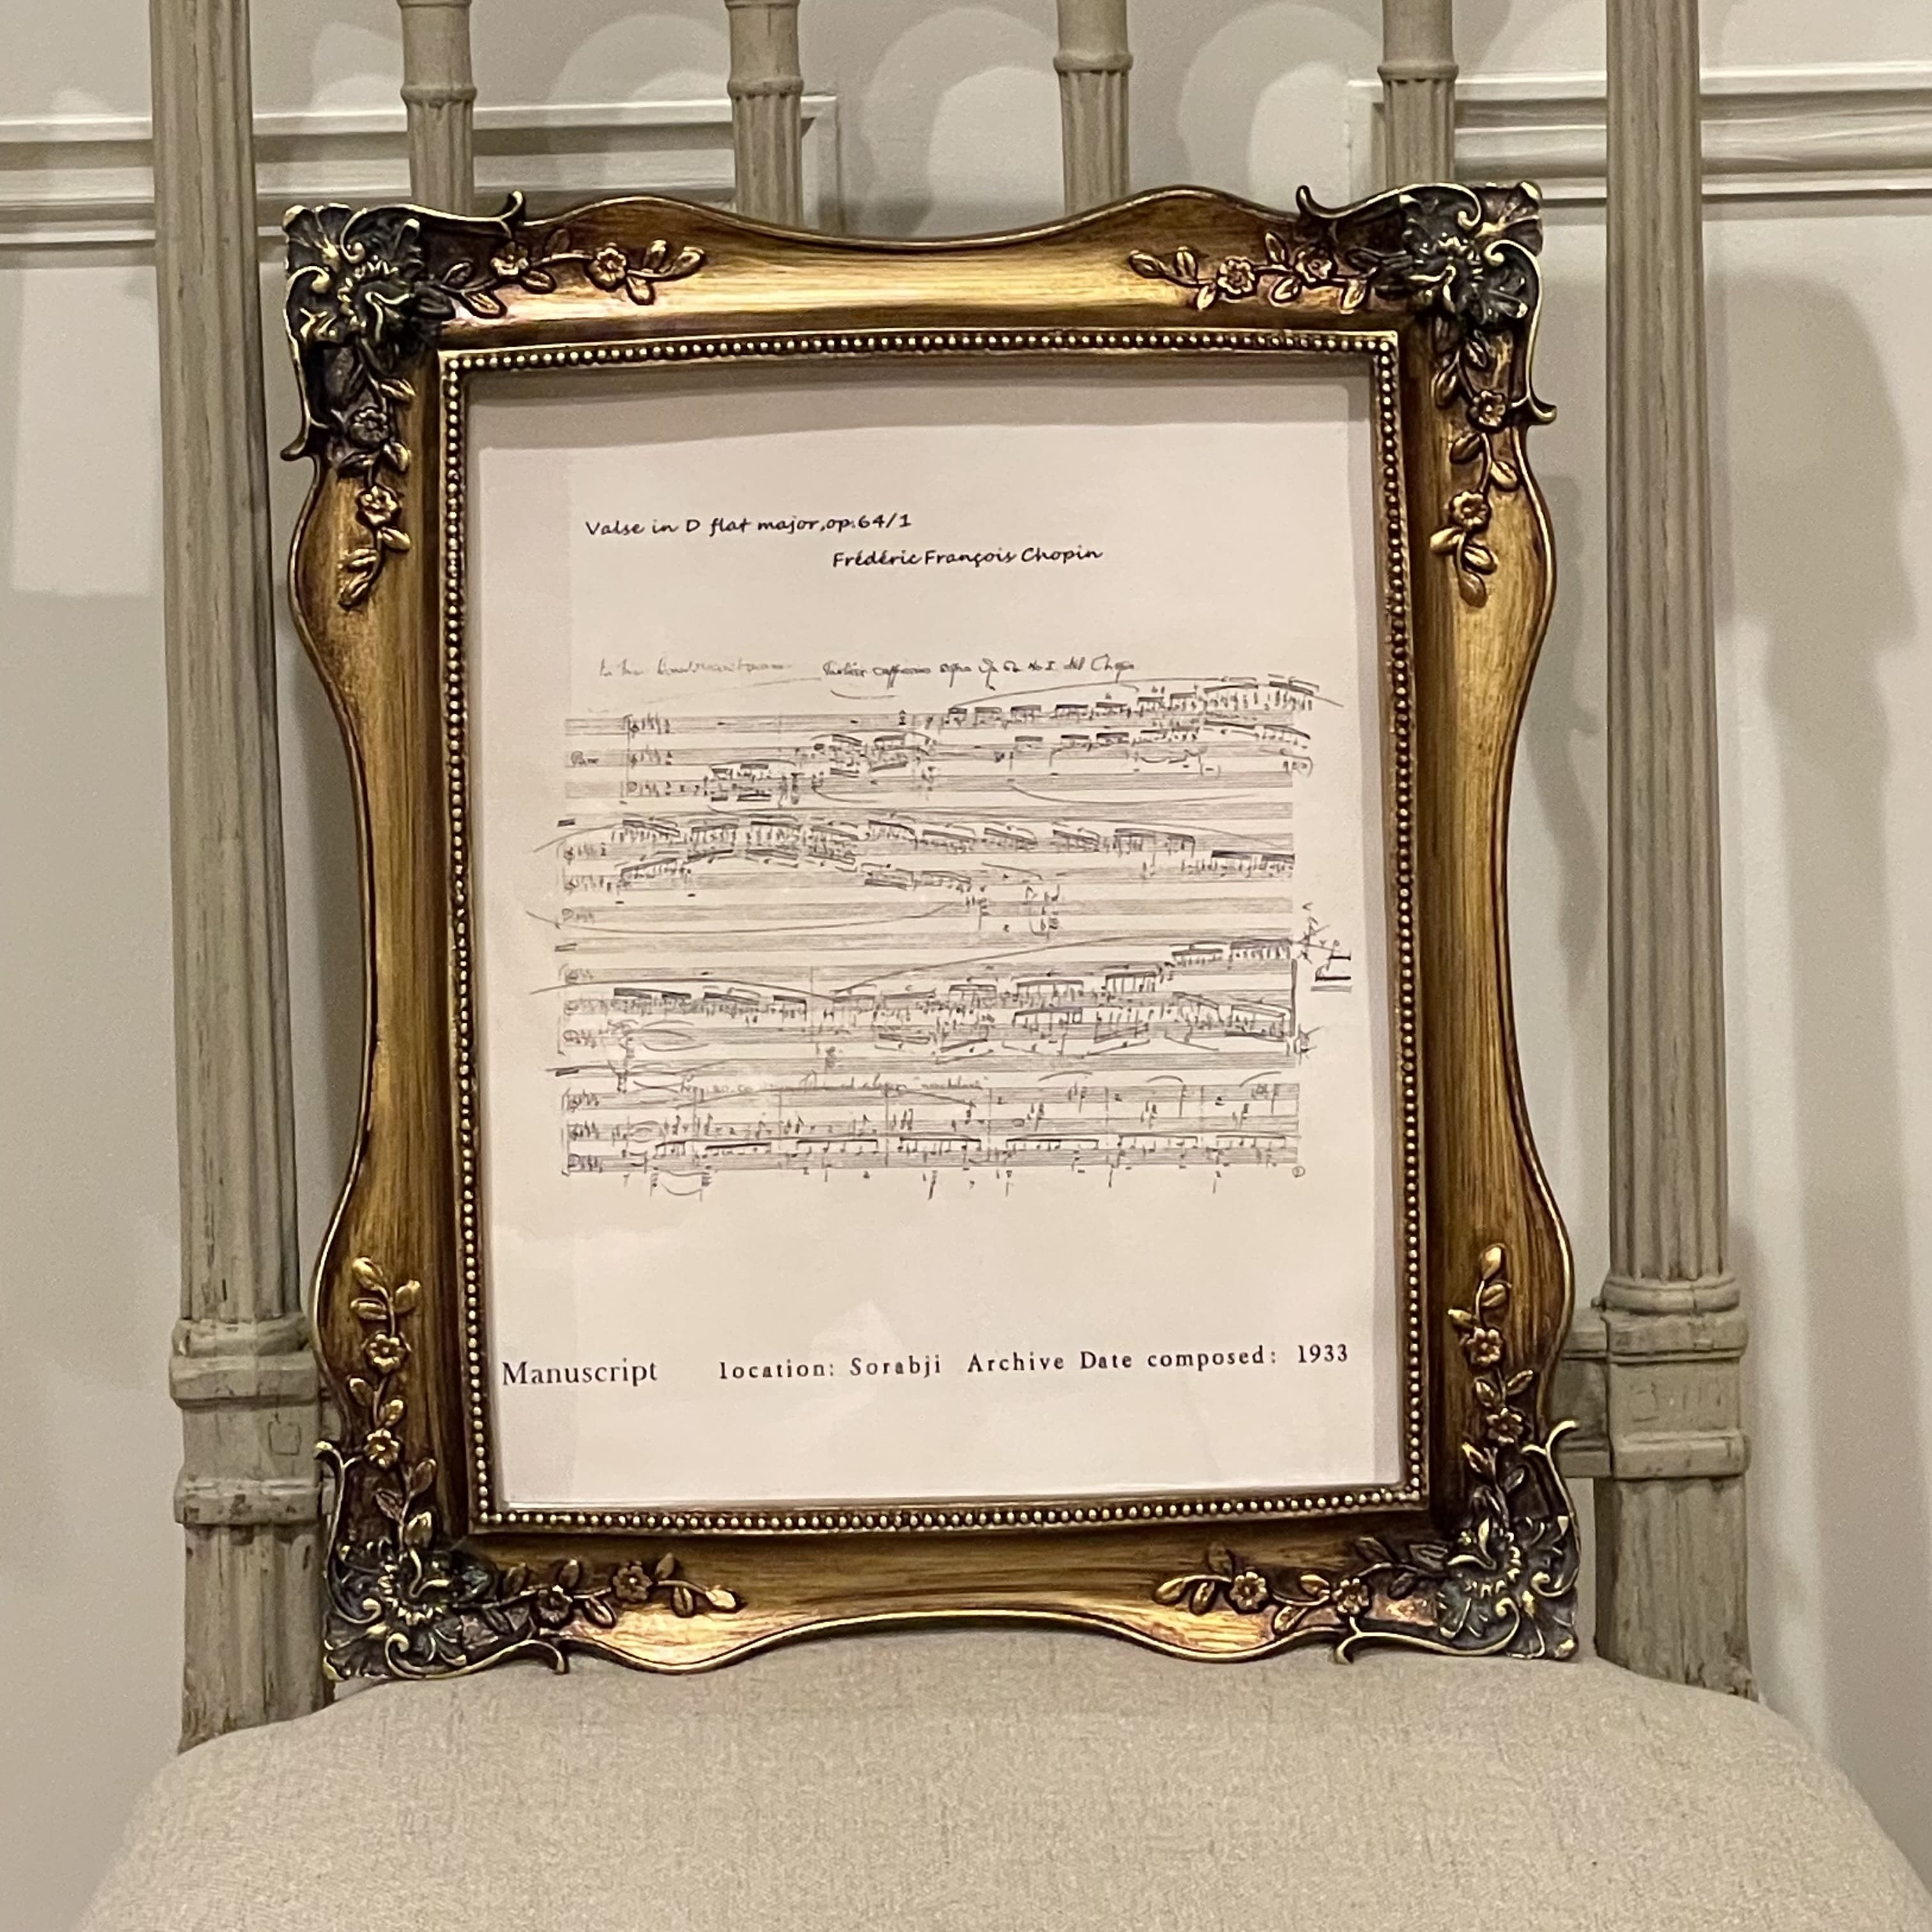 Valse in D flat major,op.64/1
Frédéric François Chopin
Op No I. del Chopin
Manuscript location: Sorabji Archive Date composed: 1933